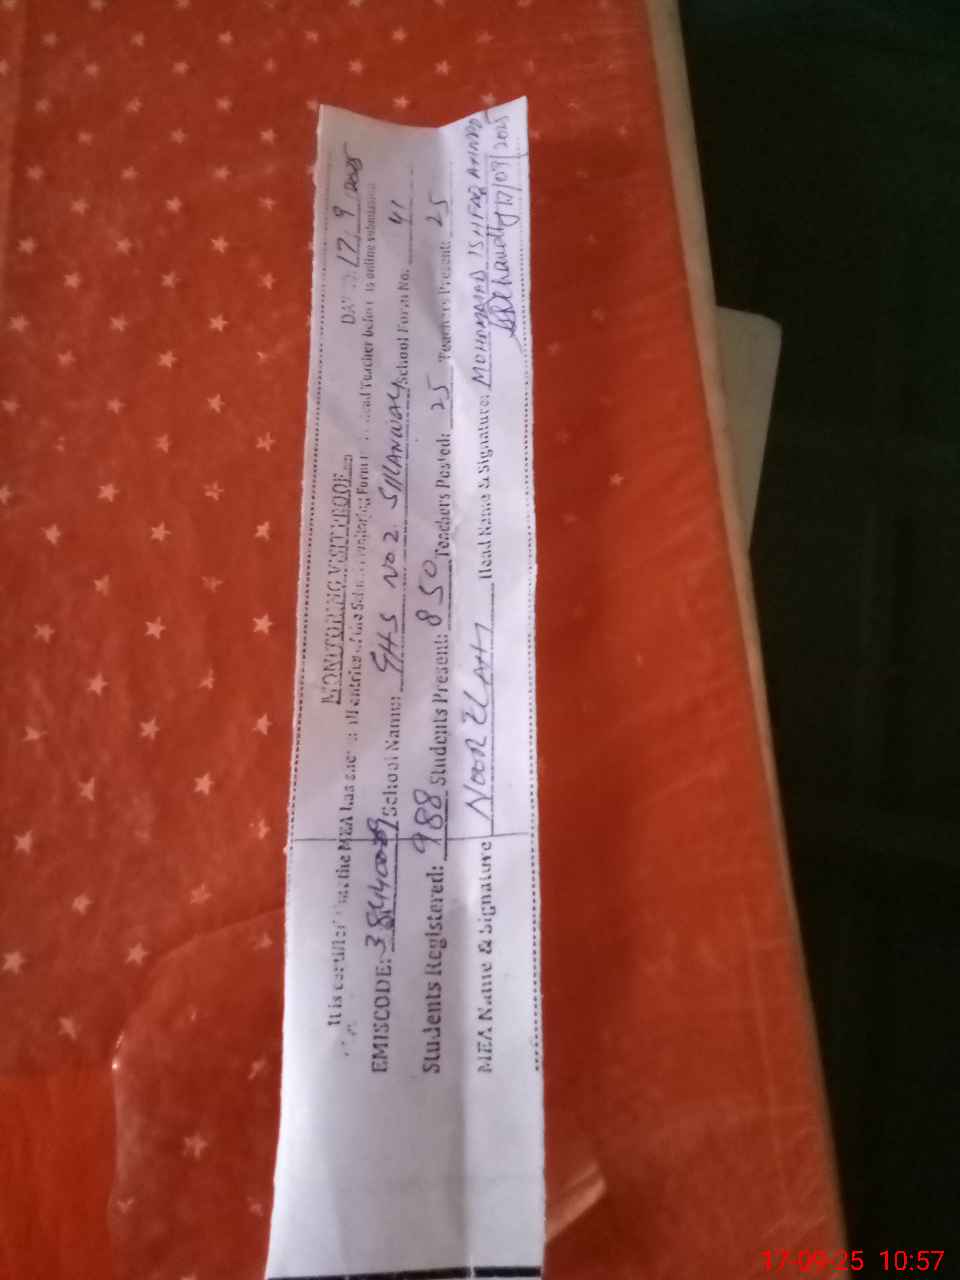 MONITORING VISIT PROOF
DATED: 17/9/2025
It is certified that the MEA has shown all entries of the School Monitoring Form to Head Teacher before its online submission
EMISCODE: School Name: GHS NO 2 School Form No. 41
Students Registered: 988 Students Present: 850 Teachers Posted: 25 Teachers Present: 25
MEA Name & Signature NOOR ELAHI Head Name & Signature: MOHAMMAD ISHFAQ AHMAD
17/09/2025
17-09-25 10:57